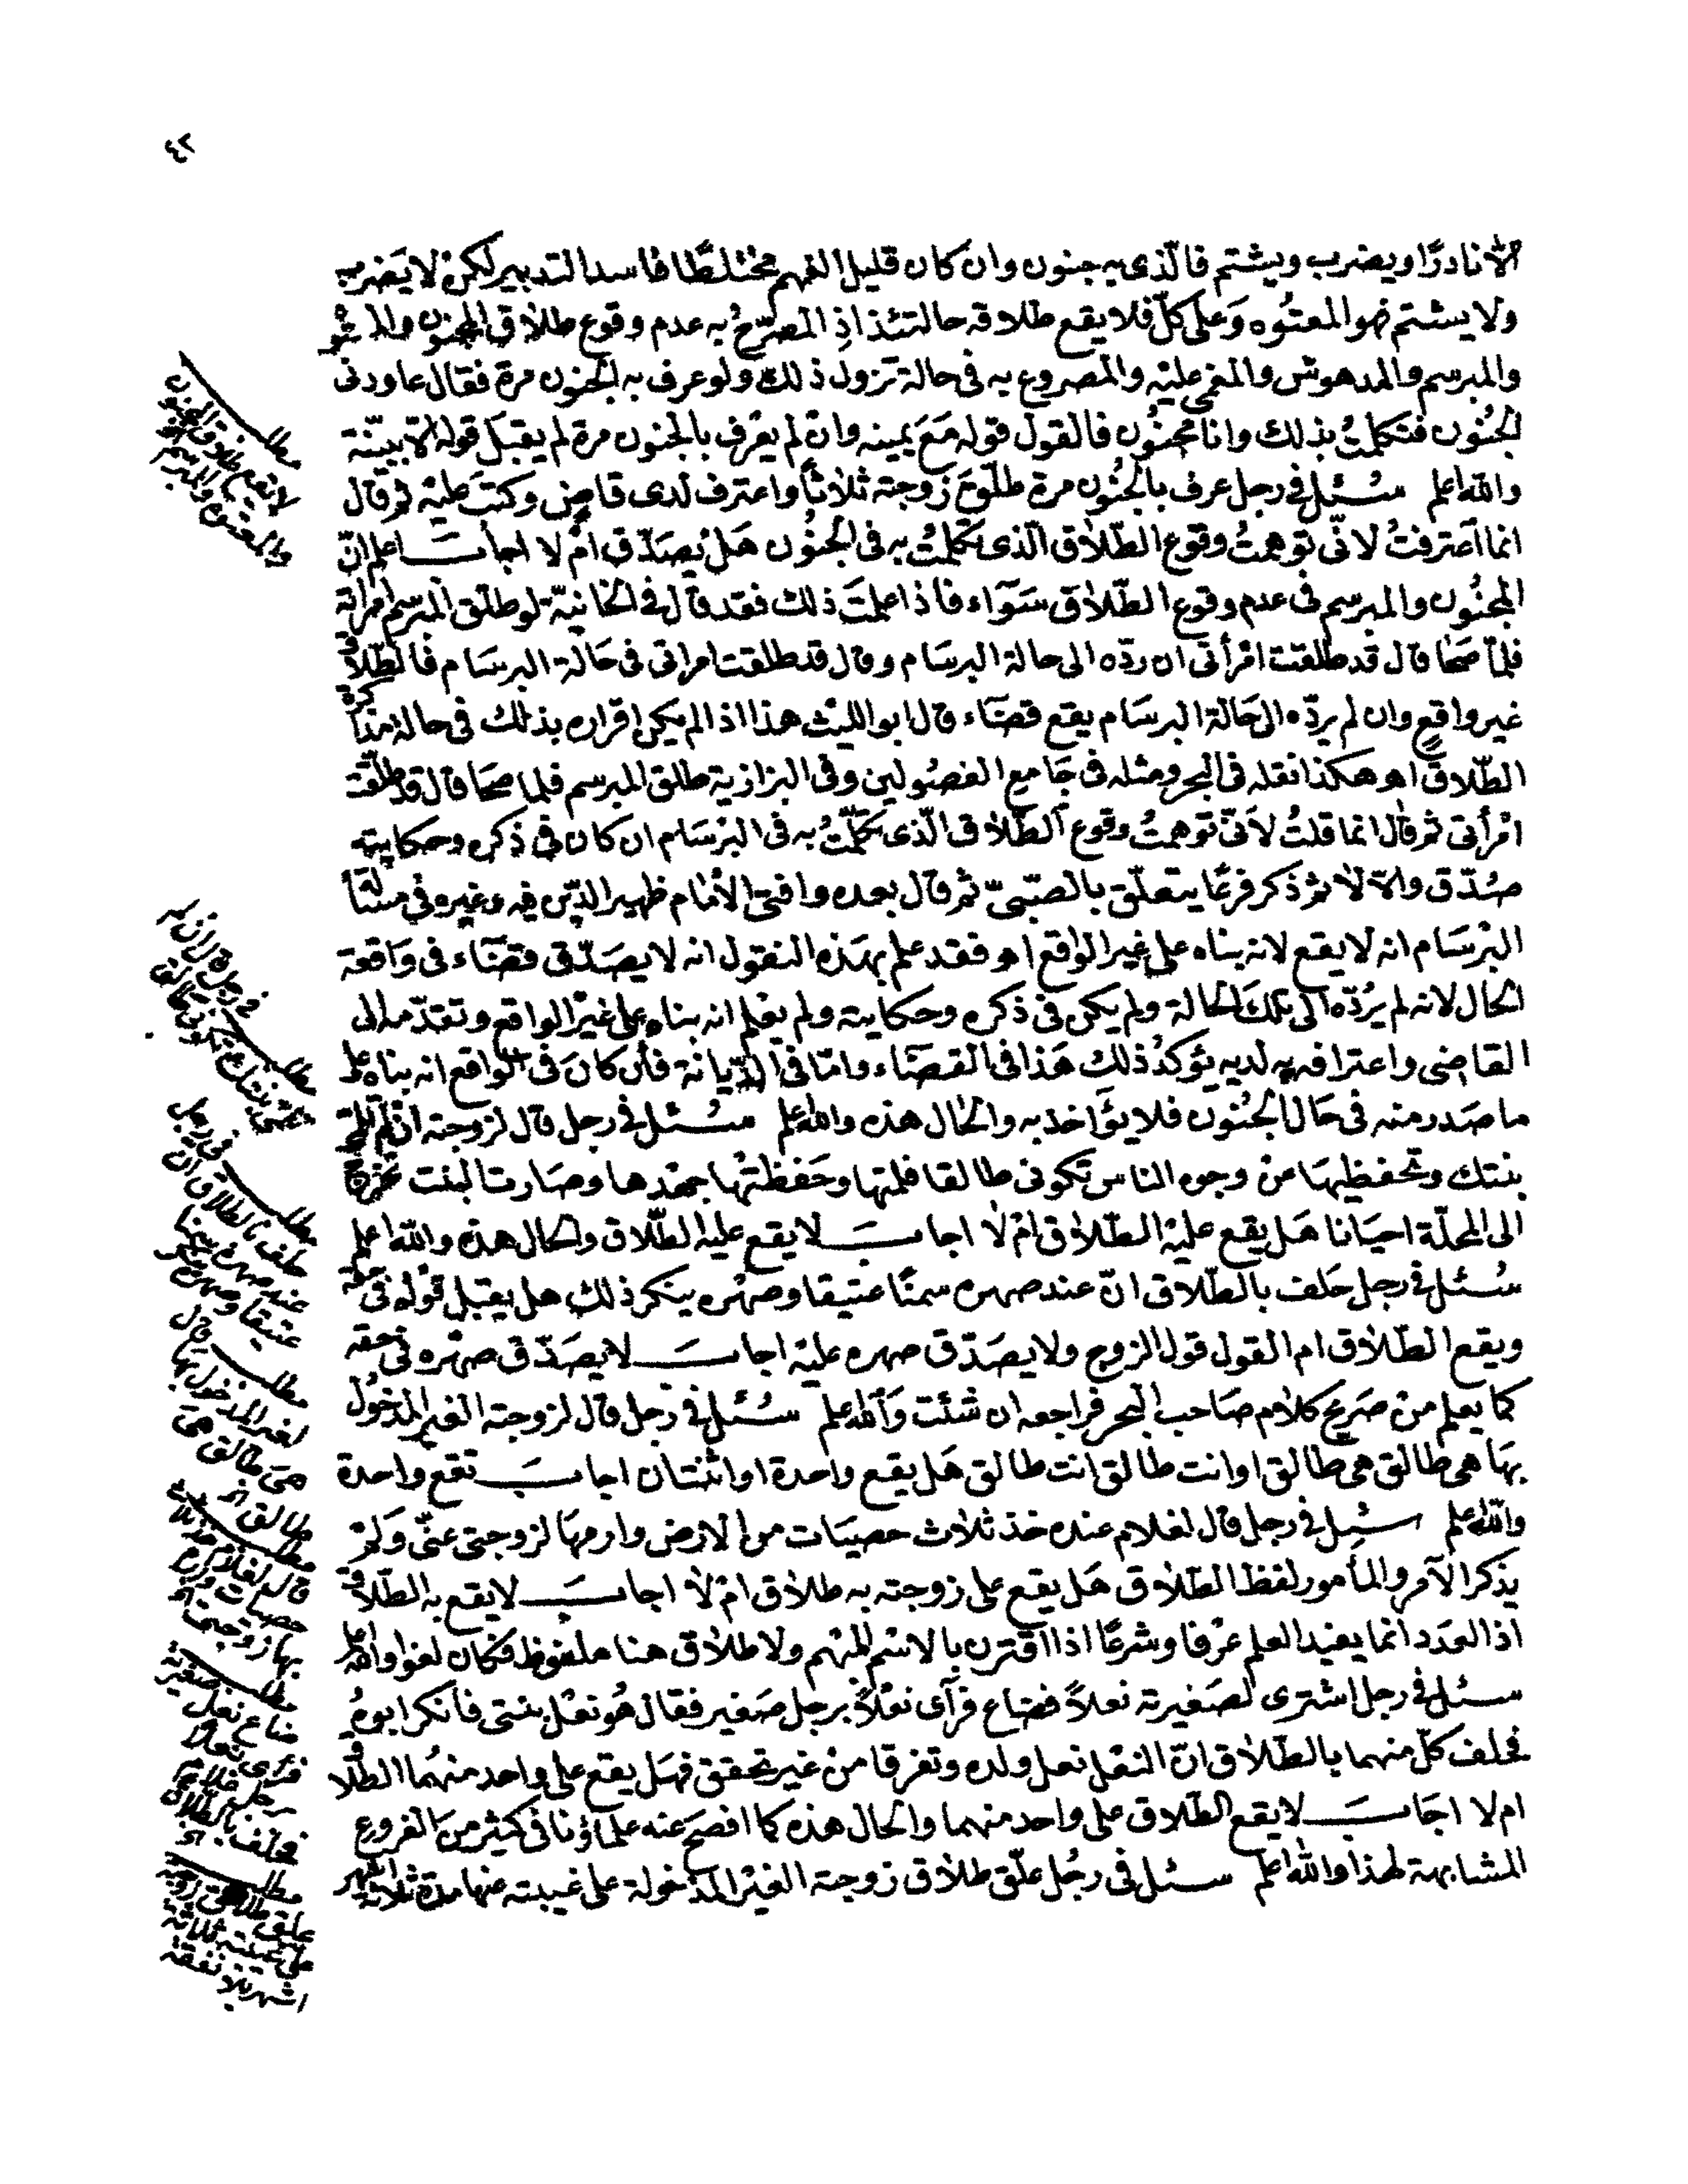 ٤٢
الا نادرًا ويضرب ويشتم فالّذى به جنون وان كان قليل الفهم مختلطًا فاسد التدبير لكن لا يَضرب
ولا يشتم فهو المعتُوه وَعلى كلّ فلا يقع طلاقه حالتئذ اذِ المصرّحُ به عدم وقوع طلاق المجنون والمعتوه
والمبرسم والمدهوش والمغمى عليْه والمصروع به فى حالة تزول ذلك ولو عرف به الجنون مرة فقال عاودنى
الجنُون فتكلمتُ بذلك وانا مجنُون فالقول قوله مَعَ يمينه وان لم يعْرف بالجنون مرة لم يقبَل قوله الّا ببيّنة
والله اعلم سُئل فى رجل عرف بالجنُون مرة طلّق زوجته ثلاثاً واعترف لدى قاضٍ وكتبَ عليْه ثم قال
انما اعترفتُ لانّى توهمتُ وقوع الطّلاق الّذى تكلمتُ به فى الجنُون هَل يُصَدّق امْ لا اجابَ اعلم انّ
المجنُون والمبرسم فى عدم وقوع الطّلاق سَوَاء فاذا علمتَ ذلك فقد قال فى الخانيّة لو طلّق المبرسم امراته
فلمّا صَحَا قال قد طلقت امْرأتى ان ردّه الى حالة البرسَام وقال قد طلقت امراتى فى حَالة البرسَام فالطّلاق
غير واقعٍ وان لم يردّه الى حَالة البرسَام يقع قضَاء قال ابو الليْث هذا اذا لم يكن اقراره بذلك فى حالة مذاكرة
الطّلاق اهـ هكذا نقله فى البحر ومثله فى جَامع الفصُولين وفى البزازية طلق المبرسم فلما صحَا قال قد طلّقت
امْرأتى ثم قال انما قلتُ لاَنّى توهمتُ وقوع الطّلاق الّذى تكلّمتُ به فى البرْسَام ان كان فى ذكره وحكايته
صُدّق والّا لا ثم ذكر فرعًا يتعلّق بالصّبىّ ثم قال بعده وافتى الأمَام ظهير الدّين فيه وغيره فى مسْئلة
البرْسَام انه لا يقع لانه بناه على غير الوَاقع اهـ فقد علم بهَذه النقول انه لا يصَدّق قضَاء فى وَاقعة
الحال لانه لم يرُدّه الى تلكَ الحالة ولم يكن فى ذكره وحكايته ولم يعْلم انه بناه على غيْر الواقع وتقدّمه الى
القاضى واعترافه به لديه يؤكدُ ذلك هَذا فى القضَاء وامّا فى الدّيانة فأن كانَ فى الواقع انه بناه على
ما صَدر منه فى حَال الجنُون فلا يؤَاخذ به والحَال هذه والله اعلم سُئل فى رجل قال لزوجته ان لم تلمى
بنتك وتحفظيهَا منْ وجوه الناس تكونى طالقا فلمتها وحَفظتْها جهْدها وصَارت البنت تخرج
الى المحلّة احيَانا هَل يقع عليْه الطّلاق امْ لا اجابَ لا يقع عليْه الطّلاق والحال هذه والله اعلم
سُئل فى رجل حَلف بالطّلاق انّ عند صهره سمنًا عتيقا وصهْره ينكر ذلك هل يقبل قوْله فى حقه
ويقع الطّلاق ام القول قول الزوج ولا يصَدّق صهره عليْه اجابَ لا يصَدّق صهْره فى حقه
كما يعلم منْ صَريح كلام صَاحب البحر فراجعه ان شئت وَالله اعلم سُئل فى رَجل قال لزوجته الغير المدْخُول
بهَا هى طالق هى طالق او انت طالق انت طالق هَل يقع واحدة او اثنتان اجابَ تقع واحدة
والله اعلم سُئِل فى رجل قال لغلام عنده خذ ثلاث حصيَات من الارض وارمهَا لزوجتى عنّى وَلم
يذكر الآمر والمأمور لفظ الطّلاق هَل يقع على زوجته به طلاق امْ لا اجابَ لا يقع به الطّلاق
اذ العدَد انما يفيد العلم عرْفا وشرعًا اذا اقترن بالاسْم المبْهم ولا طلاق هنا ملفوظ فكان لغوا والله اعلم
سئل فى رجل اشترى لصَغيرته نعلاً فضاع فرَآى نعْلاً برجل صَغير فقال هُو نعْل بنتى فانكر ابوهُ
فحلف كلّ منهما بالطّلاق انّ النعْل نعل ولده وتفرقا منْ غير تحقق فهَل يقع على واحد منهُما الطّلاق
ام لا اجَابَ لا يقع الطّلاق على واحد منهما والحال هذه كما افصَح عنه علماؤنا فى كثير منَ الفروع
المشابهة لهذا والله اعلم سئل فى رجُل علّق طلاق زوجته الغيْر المدْخولة على غيبته عنها مدة ثلاثة اشهر
مطلب
لا يقع طلاق المجنون
مطلب
مطلب
حلف بالطلاق ان
عند صهره سمنا
عتيقا وصهره ينكر
مطلب قال
لغير المدخول بها
هى طالق هى
طالق
مطلب
قال لغلام خذ ثلاث
حصيات وارم
بها زوجتى
مطلب
ضاع نعل صغيرته
فرأى نعلا
برجل غلام
فحلف بالطلاق
مطلب
علق طلاق زوجته
على غيبته ثلاثة
اشهر بلا نفقة